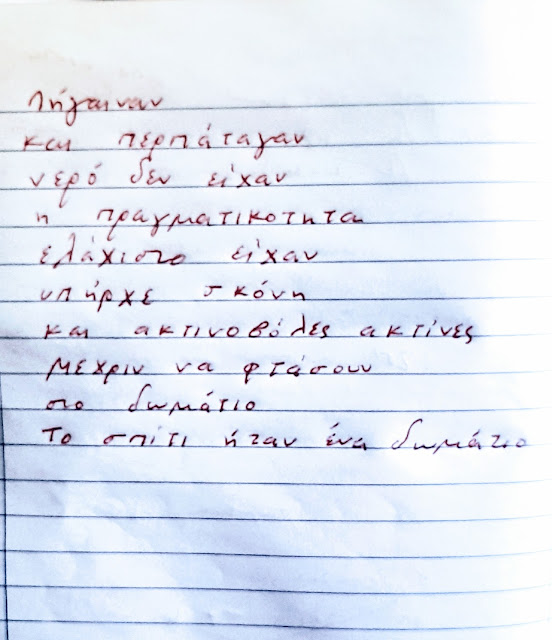 Πήγαιναν
και περπάταγαν
νερό δεν είχαν
η πραγματικοτητα
ελάχιστο είχαν
υπήρχε σκόνη
και ακτινοβόλες ακτίνες
μεχριν να φτάσουν
στο δωμάτιο
Το σπίτι ήταν ένα δωμάτιο